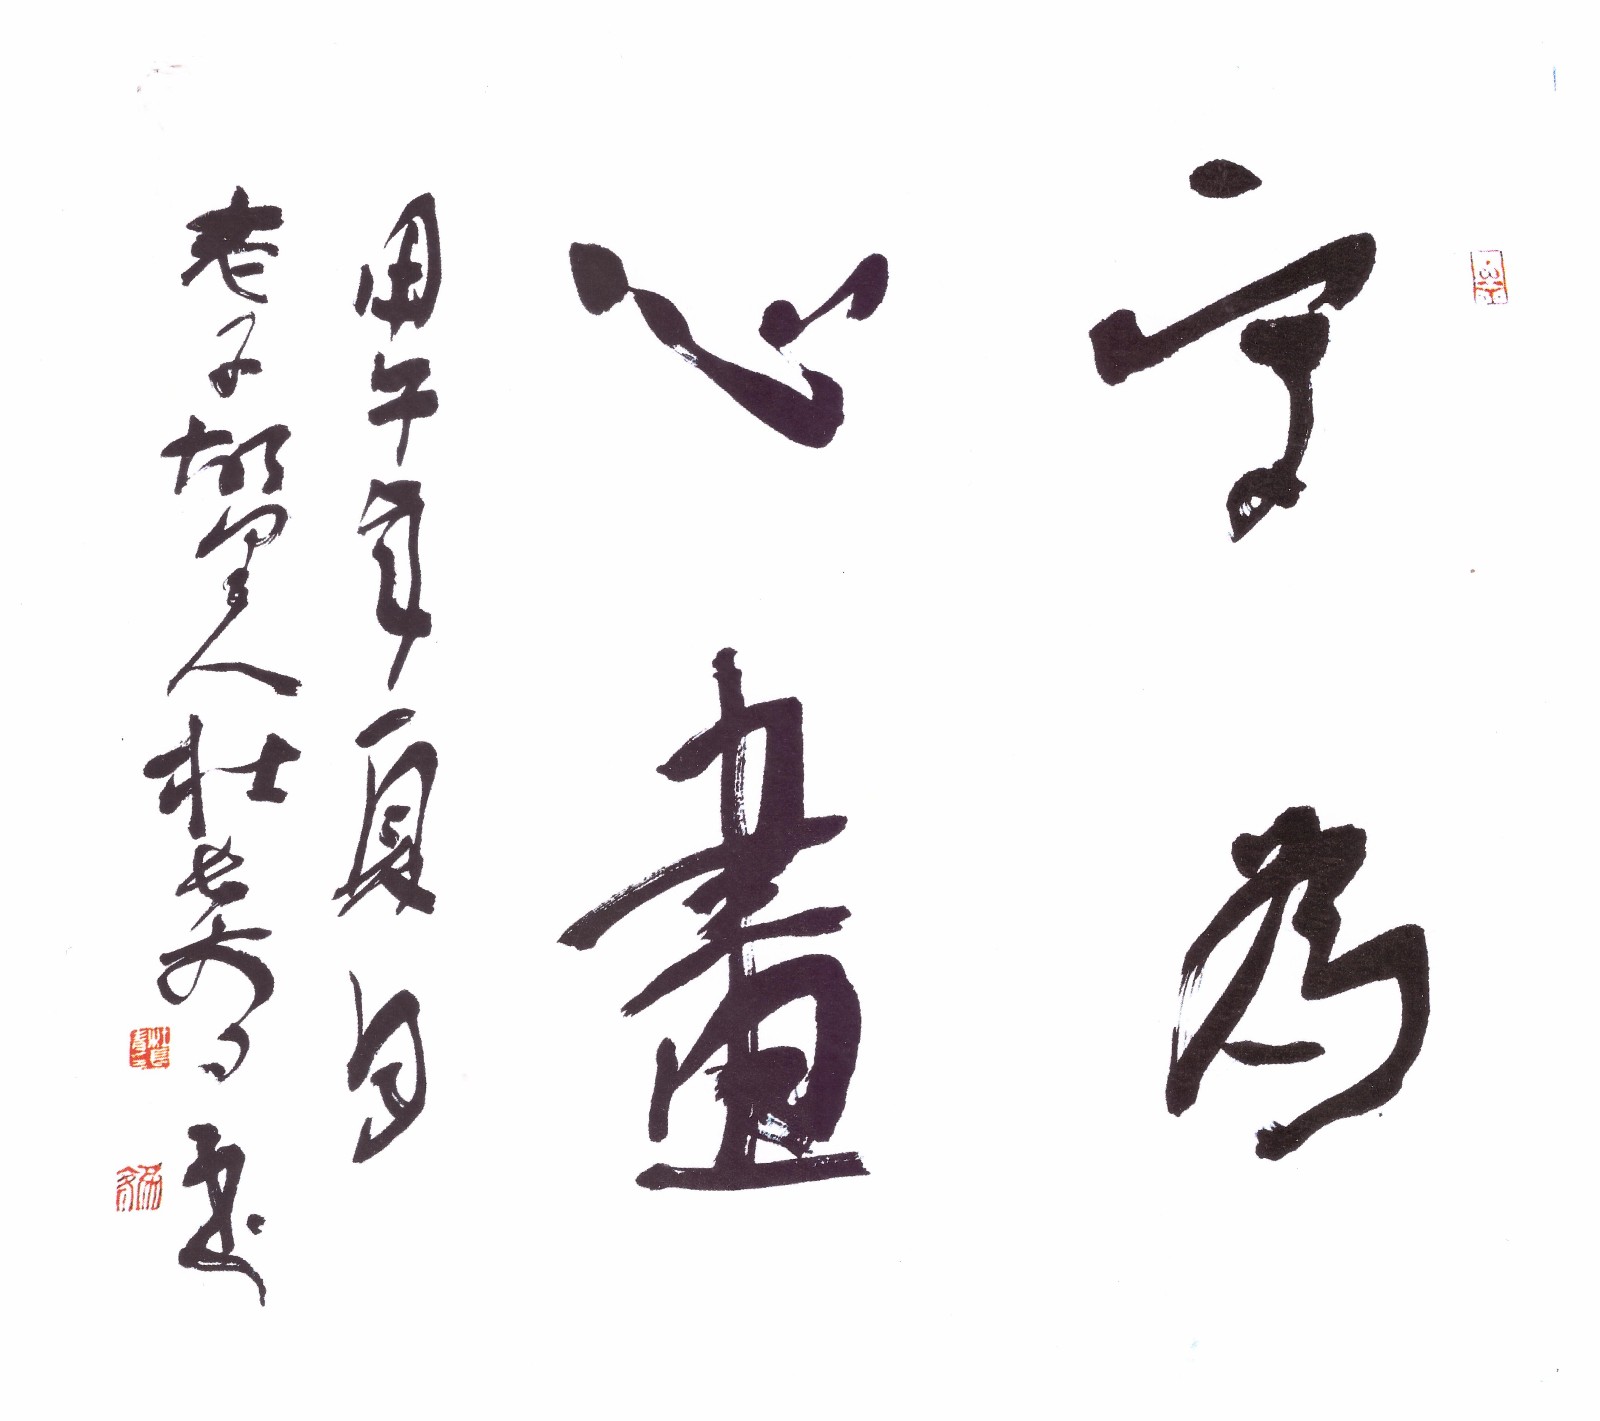 字為
心畫
甲午年夏月
老子故里人杜长